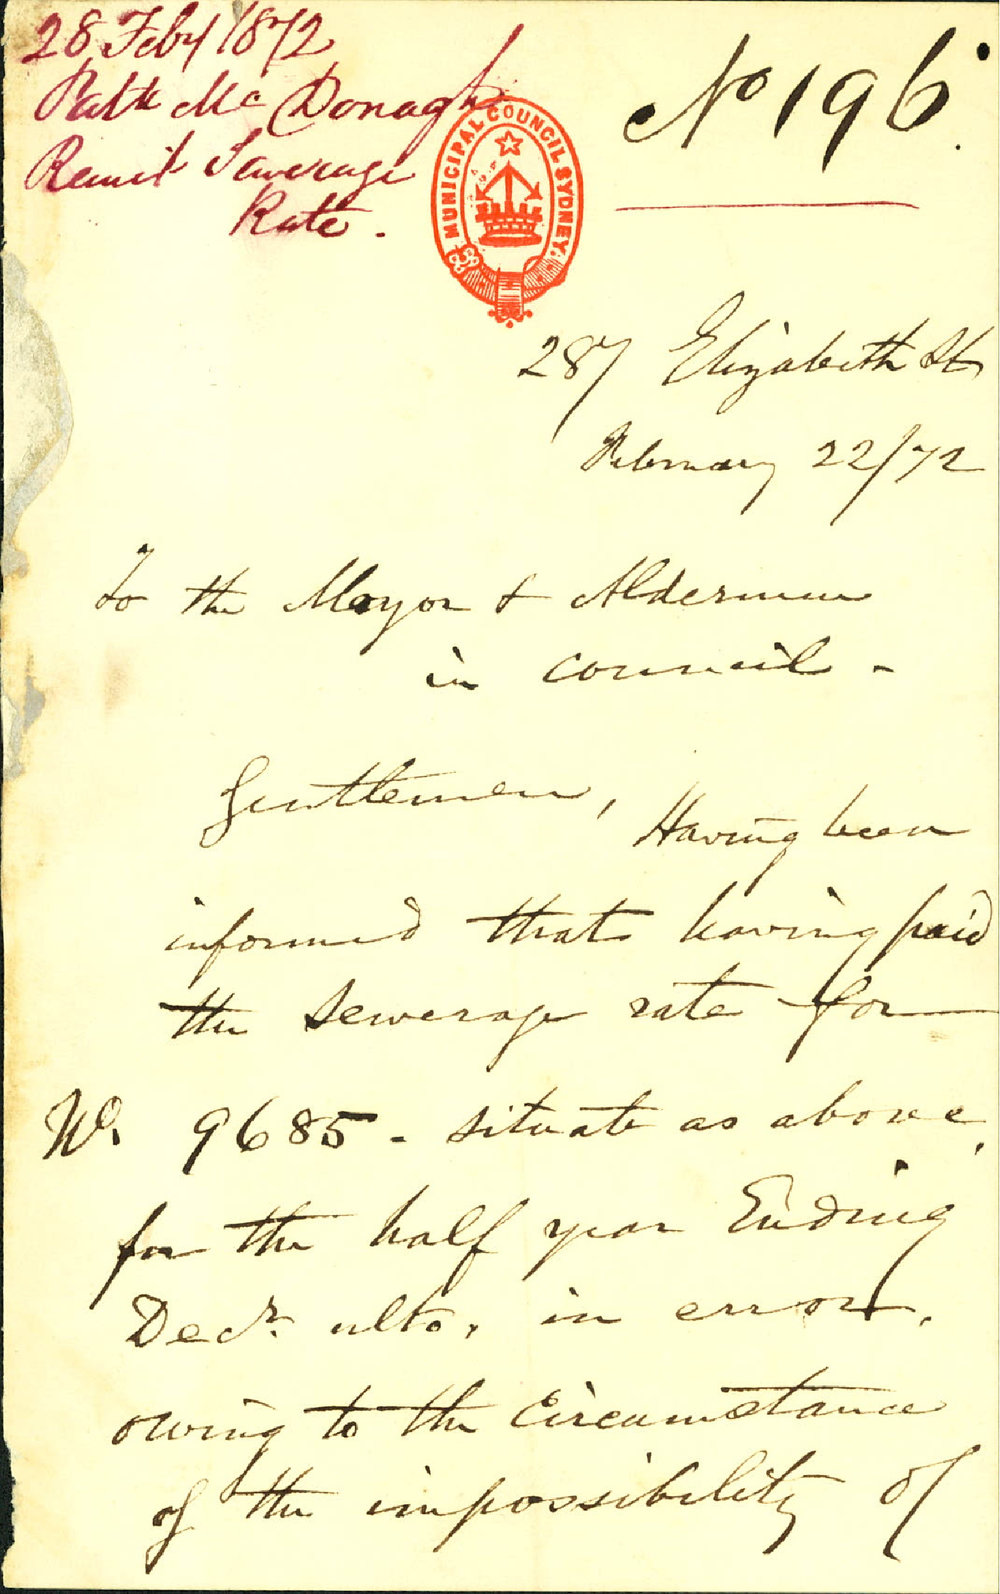 28 Feby 1872
Patk Mc Donagh
Remit Sewerage
Rate.
No 196
MUNICIPAL COUNCIL SYDNEY.
287 Elizabeth St
February 22/72
To the Mayor & Aldermen
in council -
Gentlemen,
Having been
informed that having paid
the sewerage rate for
No. 9685 - situate as above,
for the half year Ending
Decr. ulto, in error,
owing to the circumstance
of the impossibility of